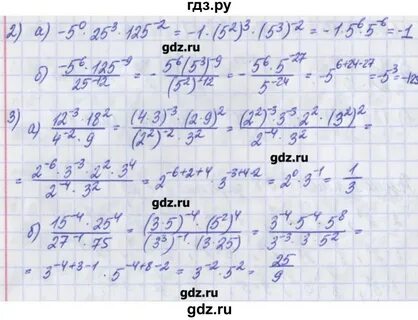 гдз.ру
2) а) -5⁰·25³·125⁻² = -1·(5²)³·(5³)⁻² = -1·5⁶·5⁻⁶ = -1
gdz.ru gdz.ru
б) -5⁶·125⁻⁹ / 25⁻¹² = - 5⁶(5³)⁻⁹ / (5²)⁻¹² = - 5⁶·5⁻²⁷ / 5⁻²⁴ = -5⁶⁺²⁴⁻²⁷ = -5³ = -125
gdz.ru gdz.ru
3) а) 12⁻³·18² / 4⁻²·9 = (4·3)⁻³·(2·9)² / (2²)⁻²·3² = (2²)⁻³·3⁻³·2²·(3²)² / 2⁻⁴·3² =
gdz.ru
= 2⁻⁶·3⁻³·2²·3⁴ / 2⁻⁴·3² = 2⁻⁶⁺²⁺⁴·3⁻³⁺⁴⁻² = 2⁰·3⁻¹ = 1/3
gdz.ru gdz.ru
б) 15⁻⁴·25⁴ / 27⁻¹·75 = (3·5)⁻⁴·(5²)⁴ / (3³)⁻¹·(3·25) = 3⁻⁴·5⁻⁴·5⁸ / 3⁻³·3·5² =
gdz.ru
= 3⁻⁴⁺³⁻¹·5⁻⁴⁺⁸⁻² = 3⁻²·5² = 25/9
gdz.ru gdz.ru